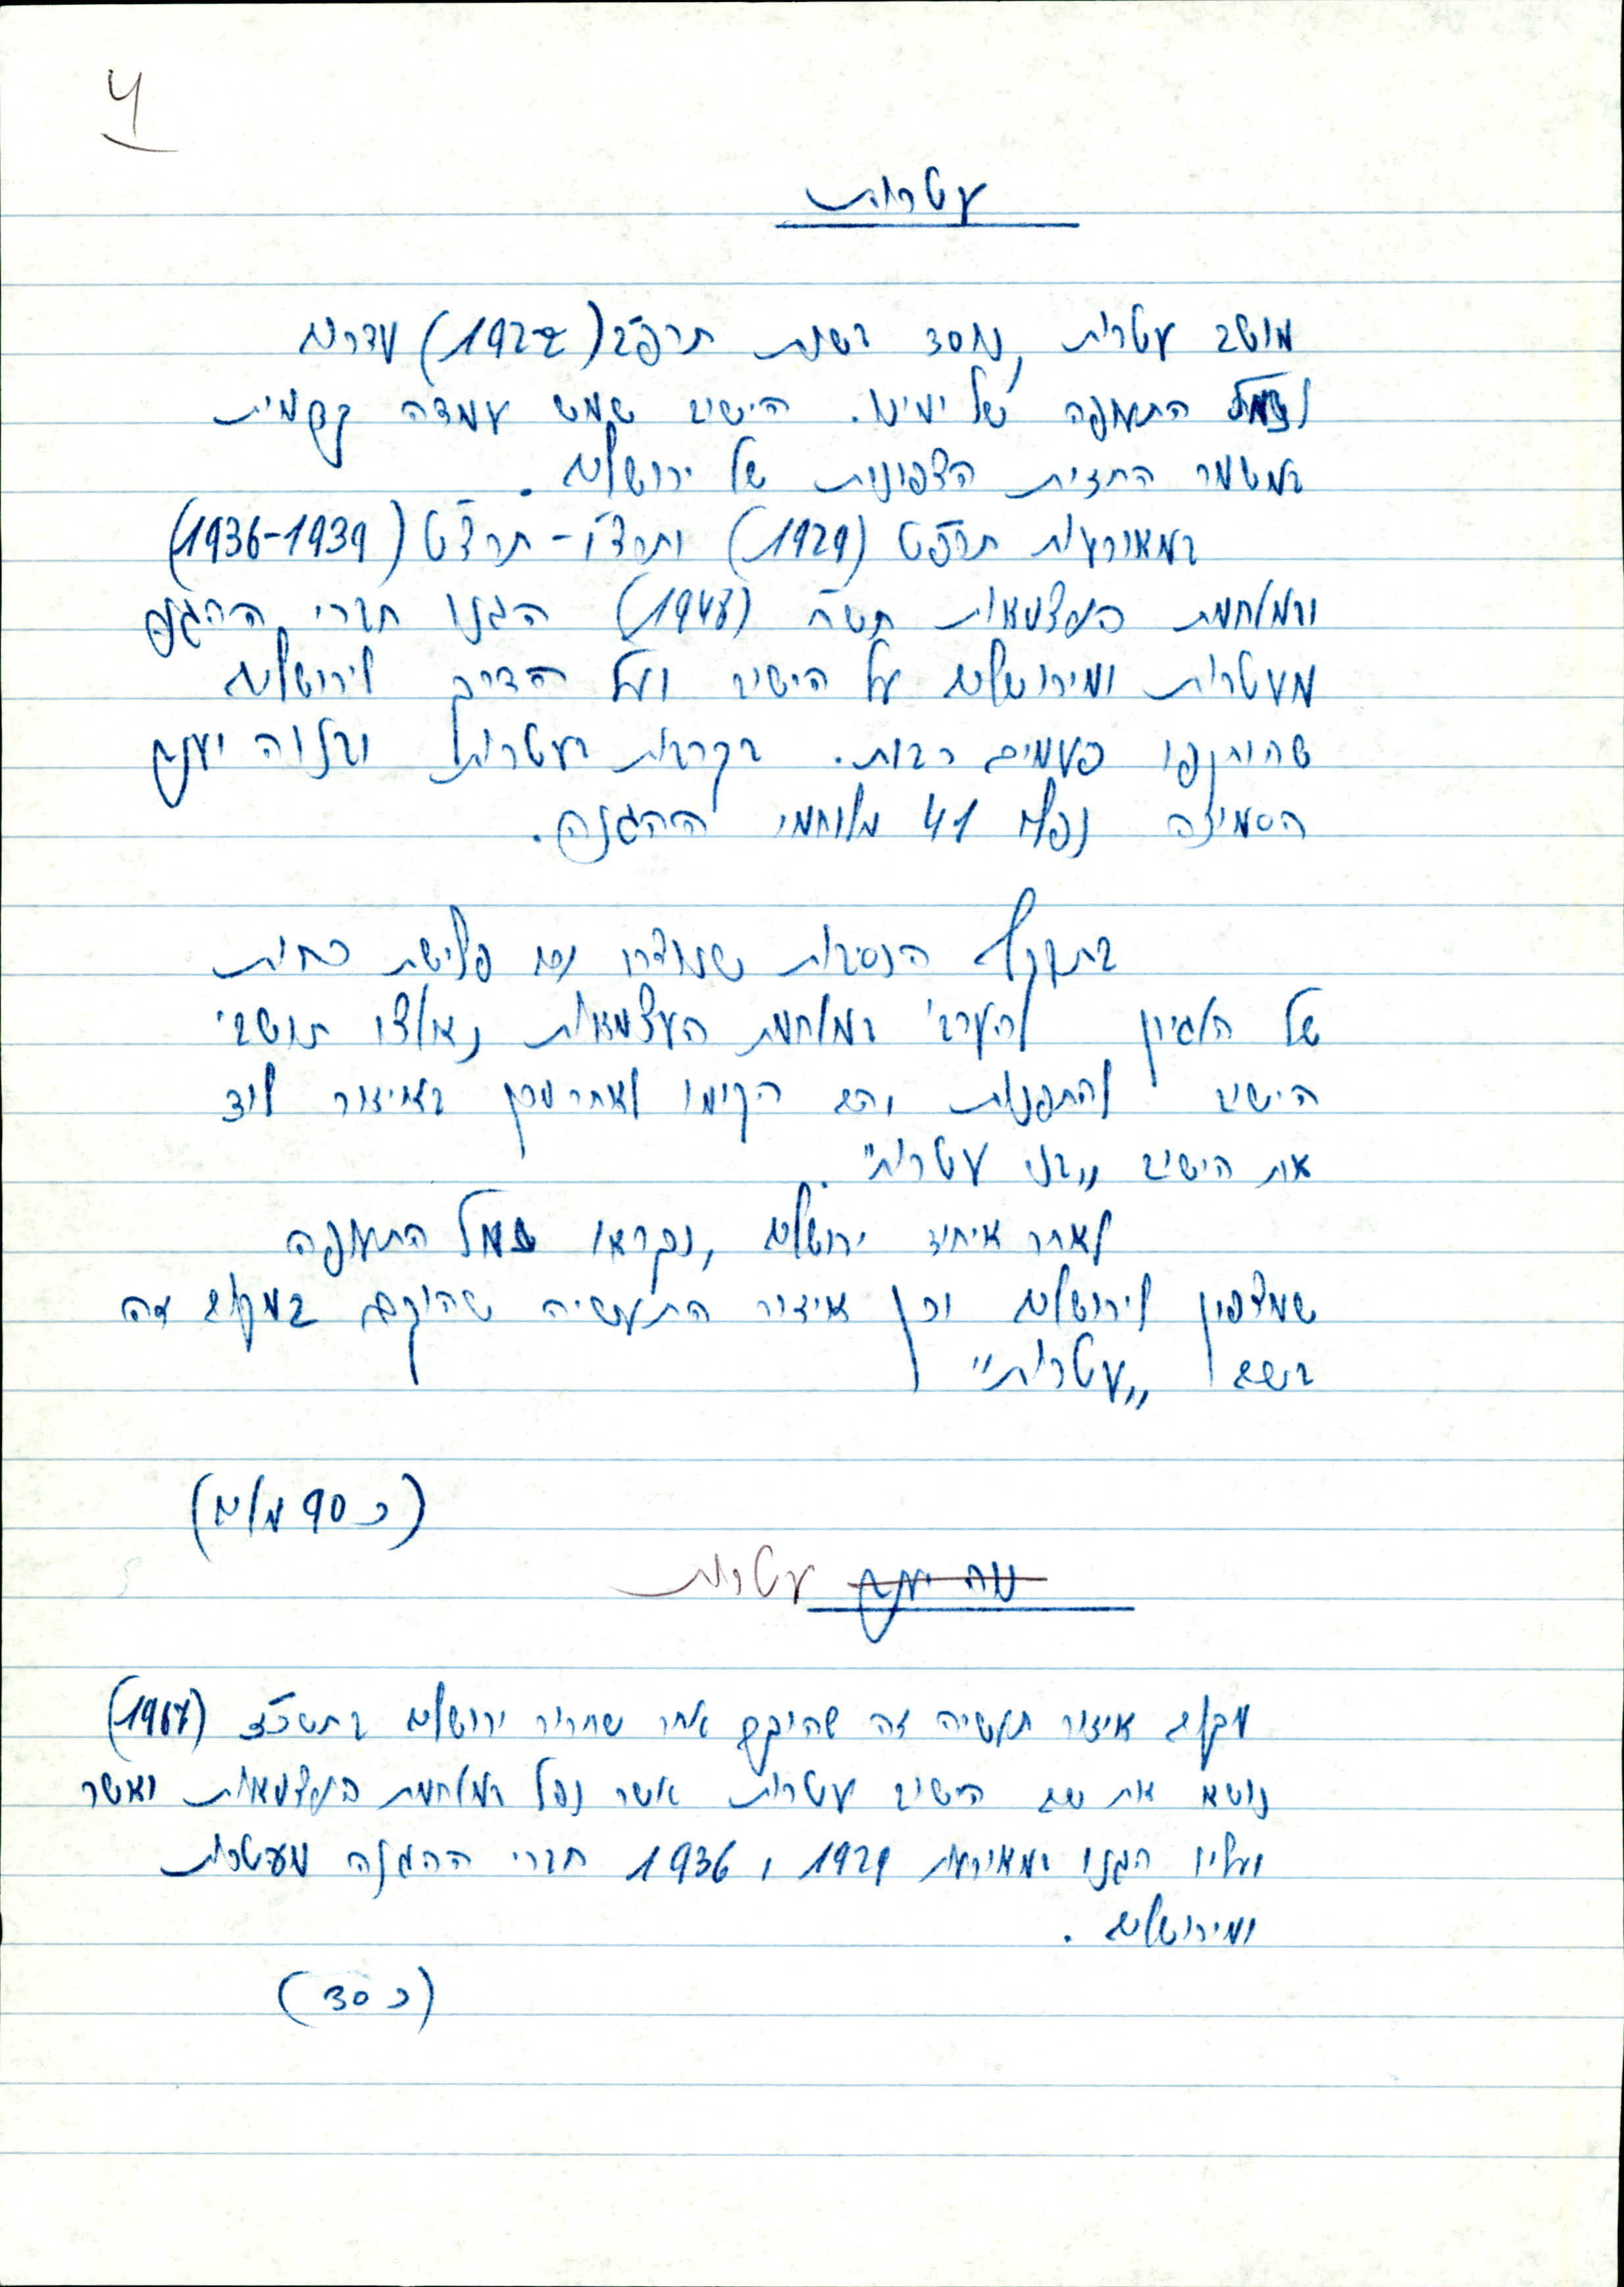 4
עטרות
מושב עטרות, נוסד בשנת תרפ"ב (1922) מדרום
לשדה התעופה של ימינו. הישוב שמש עמדה קדמית
במשמר החזית הצפונית של ירושלים.
במאורעות תרפ"ט (1929) ותרצ"ו - תרצ"ט (1936-1939)
ובמלחמת העצמאות תש"ח (1948) הגנו חברי ההגנה
מעטרות ומירושלים על הישוב ועל הדרך לירושלים
שהותקפו פעמים רבות. בקרבות בעטרות ובנוה יעקב
הסמיכה נפלו 41 מלוחמי ההגנה.
בתוקף הנסיבות שנוצרו עם פלישת כחות
של הלגיון הערבי במלחמת העצמאות נאלצו תושבי
הישוב להתפנות והם הקימו לאחר מכן באיזור לוד
את הישוב "בני עטרות".
לאחר איחוד ירושלים, נקראו שמל התעופה
שמצפון לירושלים וכן איזור התעשיה שהוקם במקום זה
בשם "עטרות"
(כ 90 מלים)
נוה יעקב עטרות
מקום איזור תעשיה זה שהוקם אחר שחרור ירושלים בתשכ"ז (1967)
נושא את שם הישוב עטרות אשר נפל במלחמת העצמאות ואשר
ועליו הגנו במאורעות 1929 ו 1936 חברי ההגנה מעטרות
ומירושלים.
(כ 30)